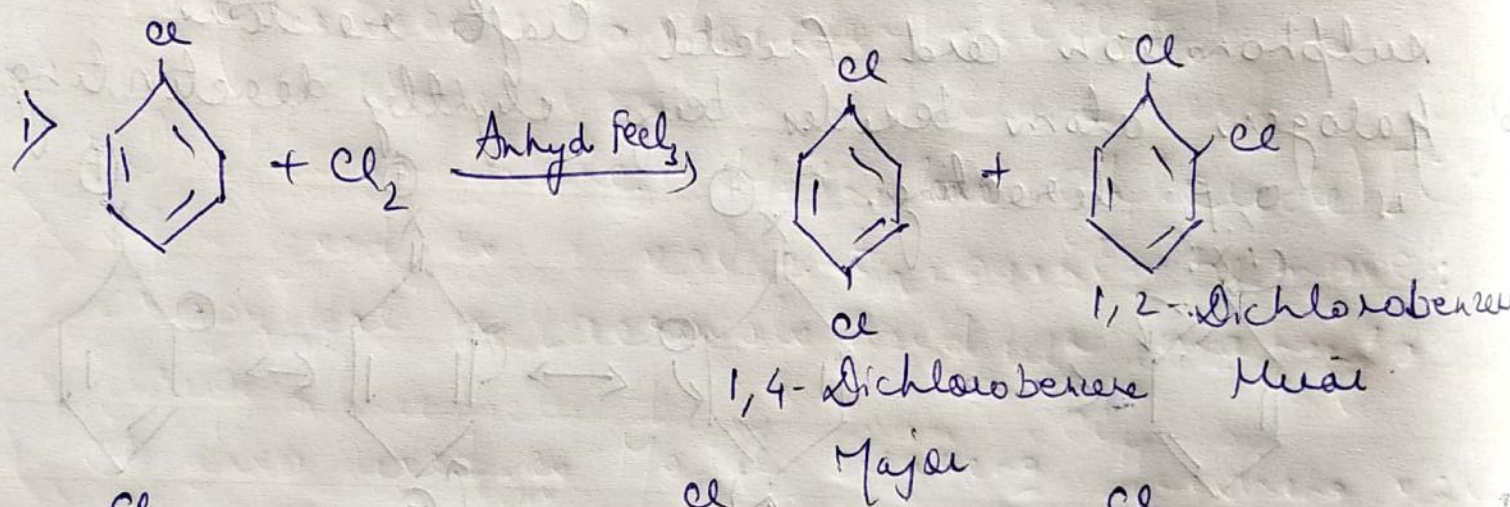 Cl
i> + Cl2 Anhyd FeCl3
Cl
+
Cl
Cl
Cl
1,2-Dichlorobenzen
1,4-Dichlorobenzene
Major
Cl Cl Cl